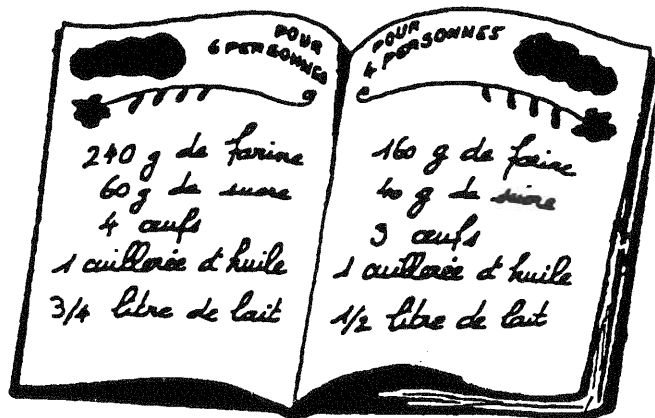 POUR
6 PERSONNES
240 g de farine
60 g de sucre
4 œufs
1 cuillerée d'huile
3/4 litre de lait
POUR
4 PERSONNES
160 g de farine
40 g de sucre
3 œufs
1 cuillerée d'huile
1/2 litre de lait